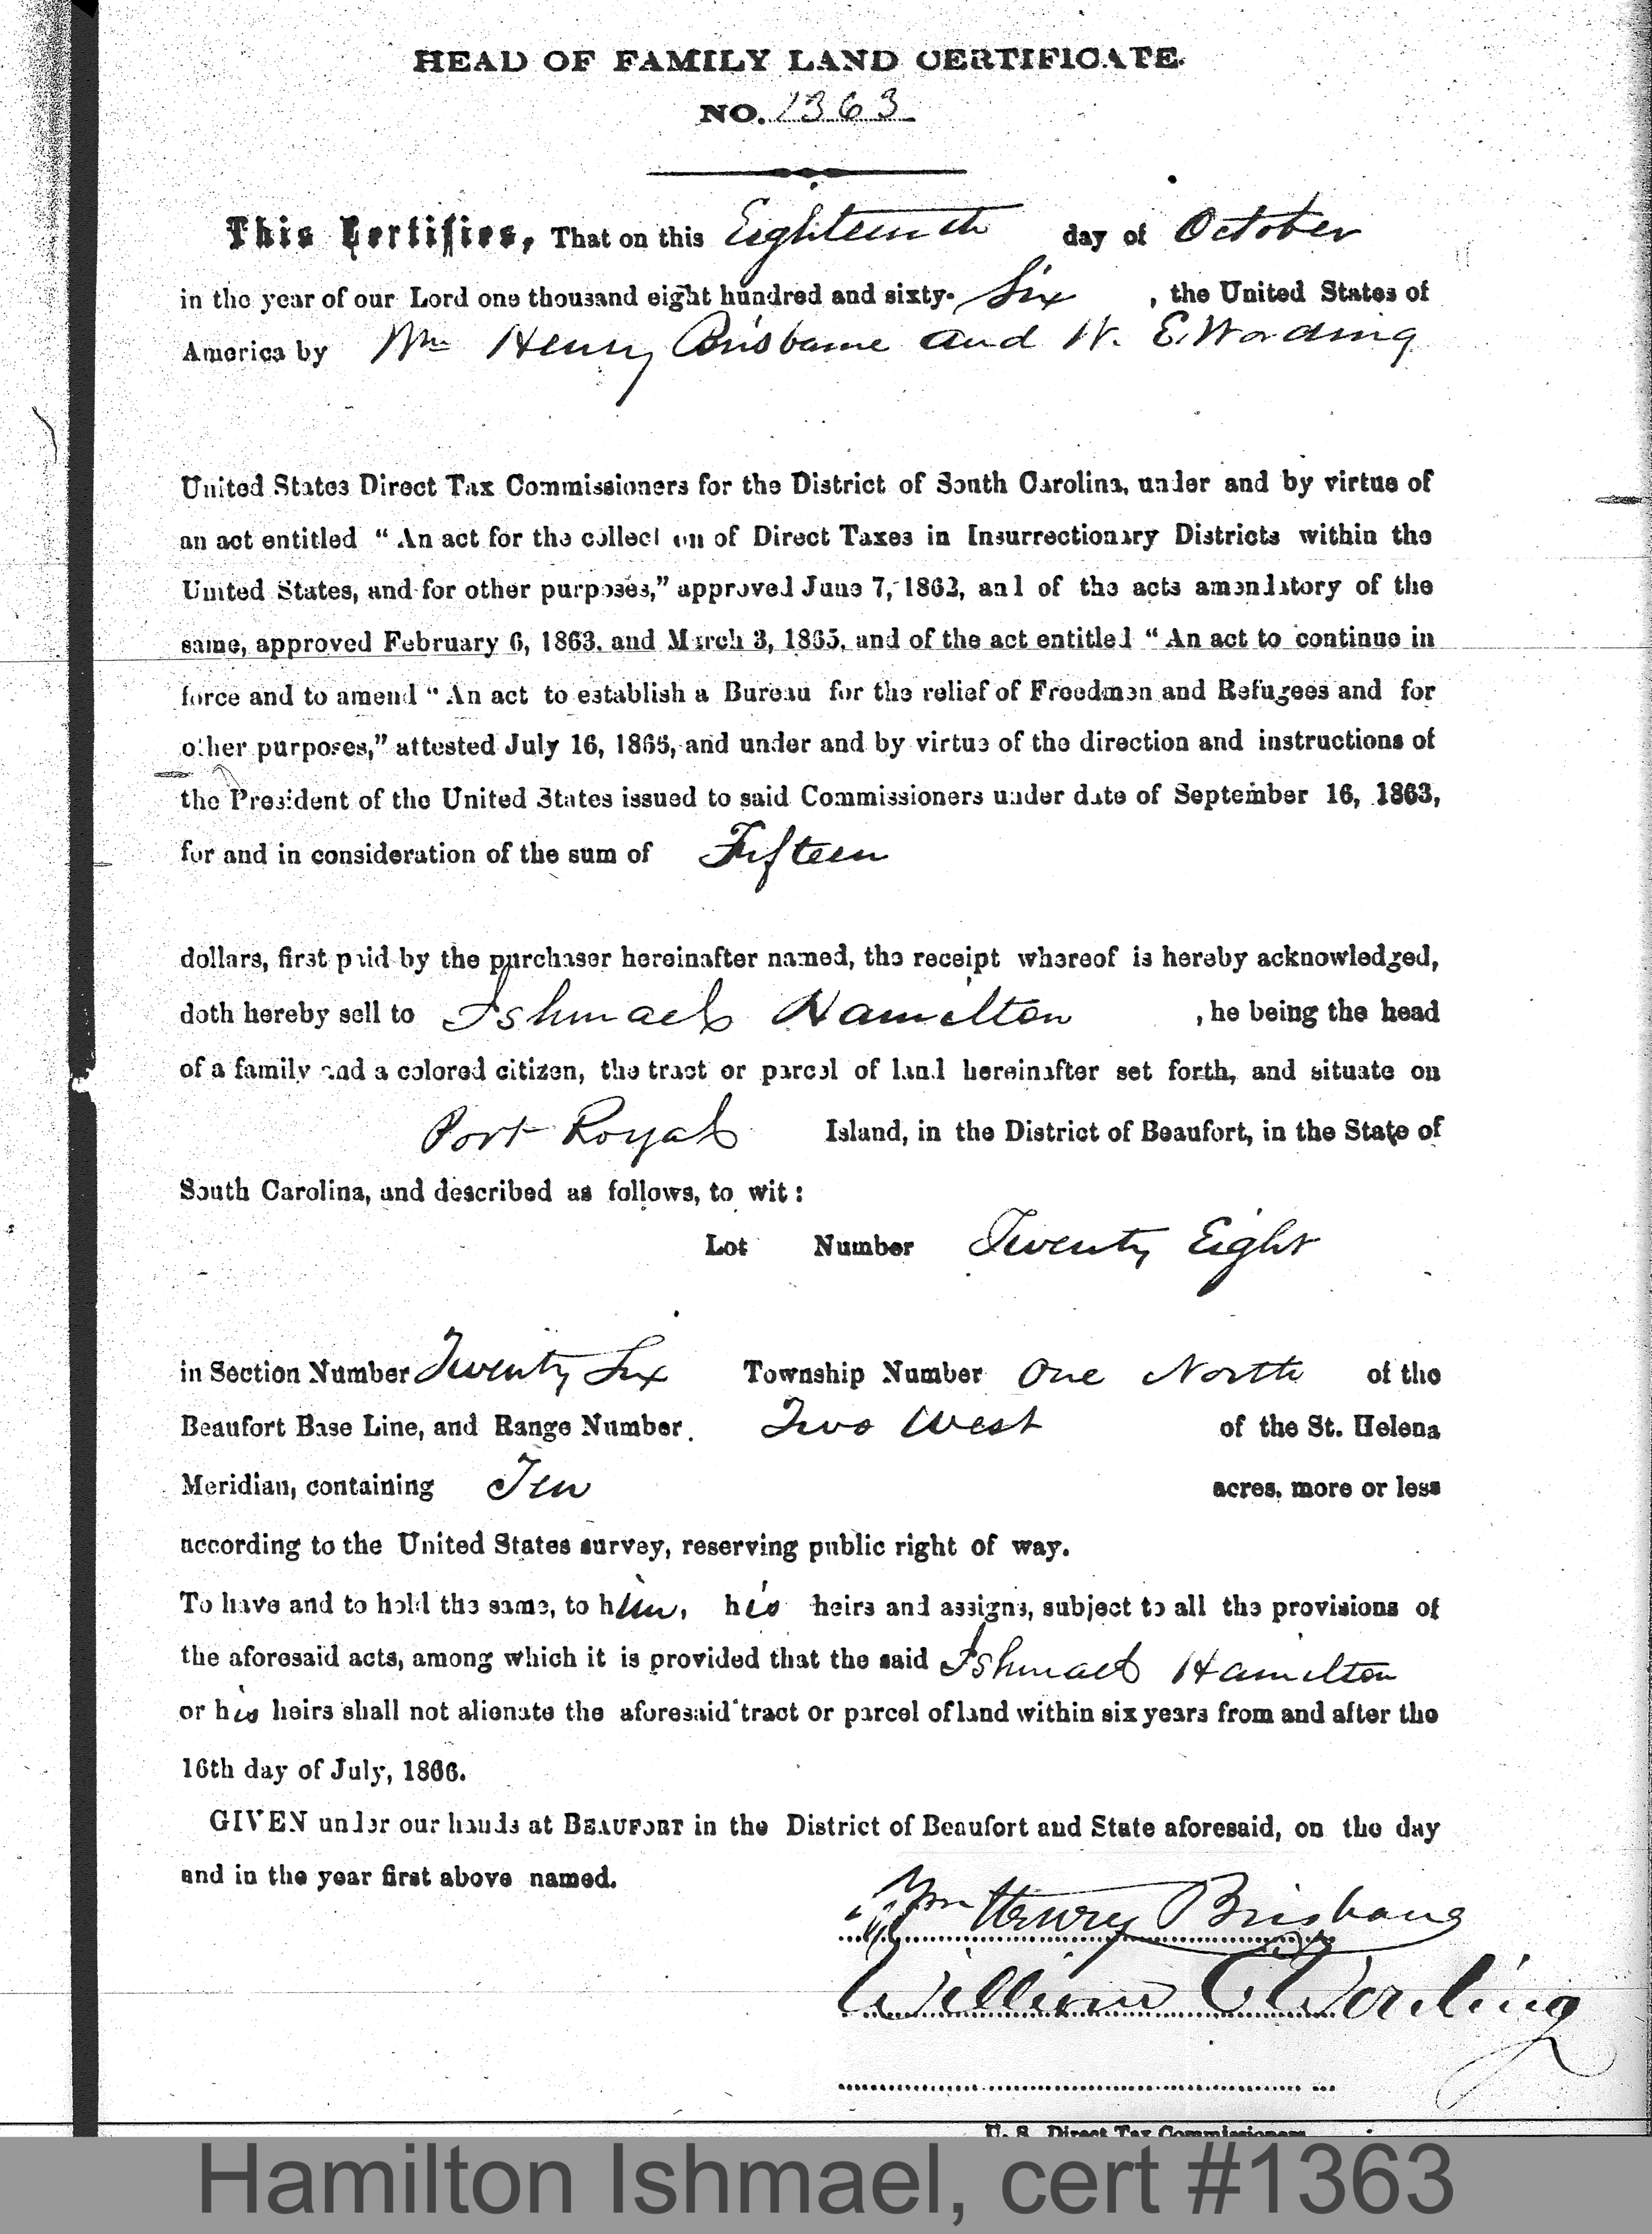 HEAD OF FAMILY LAND CERTIFICATE.
NO. 1363
This Certifies, That on this Eighteenth day of October
in the year of our Lord one thousand eight hundred and sixty-Six, the United States of
America by Wm Henry Brisbane and W. E. Wording
United States Direct Tax Commissioners for the District of South Carolina, under and by virtue of
an act entitled “An act for the collection of Direct Taxes in Insurrectionary Districts within the
United States, and for other purposes,” approved June 7, 1862, and of the acts amendatory of the
same, approved February 6, 1863, and March 3, 1865, and of the act entitled “An act to continue in
force and to amend “An act to establish a Bureau for the relief of Freedmen and Refugees and for
other purposes,” attested July 16, 1866, and under and by virtue of the direction and instructions of
the President of the United States issued to said Commissioners under date of September 16, 1863,
for and in consideration of the sum of Fifteen
dollars, first paid by the purchaser hereinafter named, the receipt whereof is hereby acknowledged,
doth hereby sell to Ishmael Hamilton, he being the head
of a family and a colored citizen, the tract or parcel of land hereinafter set forth, and situate on
Port Royal Island, in the District of Beaufort, in the State of
South Carolina, and described as follows, to wit:
Lot Number Twenty Eight
in Section Number Twenty Six Township Number One North of the
Beaufort Base Line, and Range Number. Two West of the St. Helena
Meridian, containing Ten acres, more or less
according to the United States survey, reserving public right of way.
To have and to hold the same, to him, his heirs and assigns, subject to all the provisions of
the aforesaid acts, among which it is provided that the said Ishmael Hamilton
or his heirs shall not alienate the aforesaid tract or parcel of land within six years from and after the
16th day of July, 1866.
GIVEN under our hands at BEAUFORT in the District of Beaufort and State aforesaid, on the day
and in the year first above named.
Wm Henry Brisbane
William E Wording
U. S. Direct Tax Commissioners
Hamilton Ishmael, cert #1363